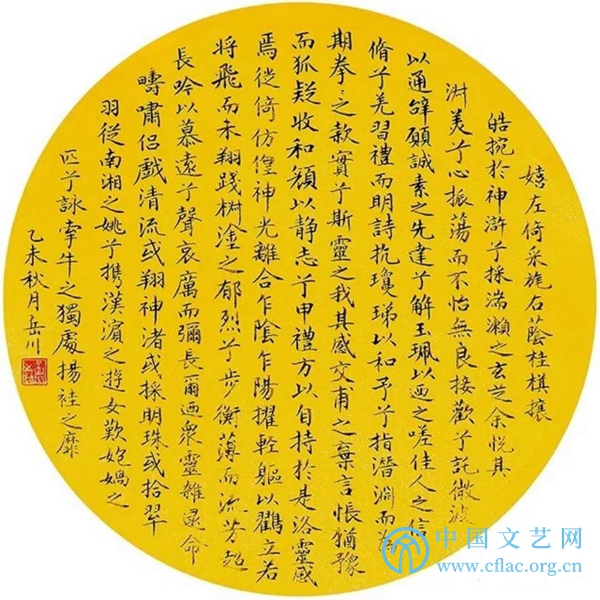 嬉左倚采旄右蔭桂棋攘
皓捥於神滸兮採湍瀨之玄芝余悅其
淋美兮心振蕩而不怡無良接歡兮託微波
以通辭願誠素之先達兮解玉珮以要之嗟佳人之信
脩兮羌習禮而明詩抗瓊珶以和予兮指潛淵而
期拳々之款實兮斯靈之我其感交甫之棄言悵猶豫
而狐疑收和顏以静志兮申禮方以自持於是洛靈感
焉徙倚仿偟神光離合乍陰乍陽擢軽軀以鸖立若
将飛而未翔踐椒塗之郁烈兮步衡薄而流芳超
長吟以慕遠兮聲哀厲而彌長爾迺衆靈雜遝命
疇嘯侶戲清流或翔神渚或採明珠或拾翠
羽從南湘之姚兮攜漢濱之遊女歎匏媧之
匹兮詠牽牛之獨處揚袿之靡
乙未秋月岳川
中国文艺网
www.cflac.org.cn